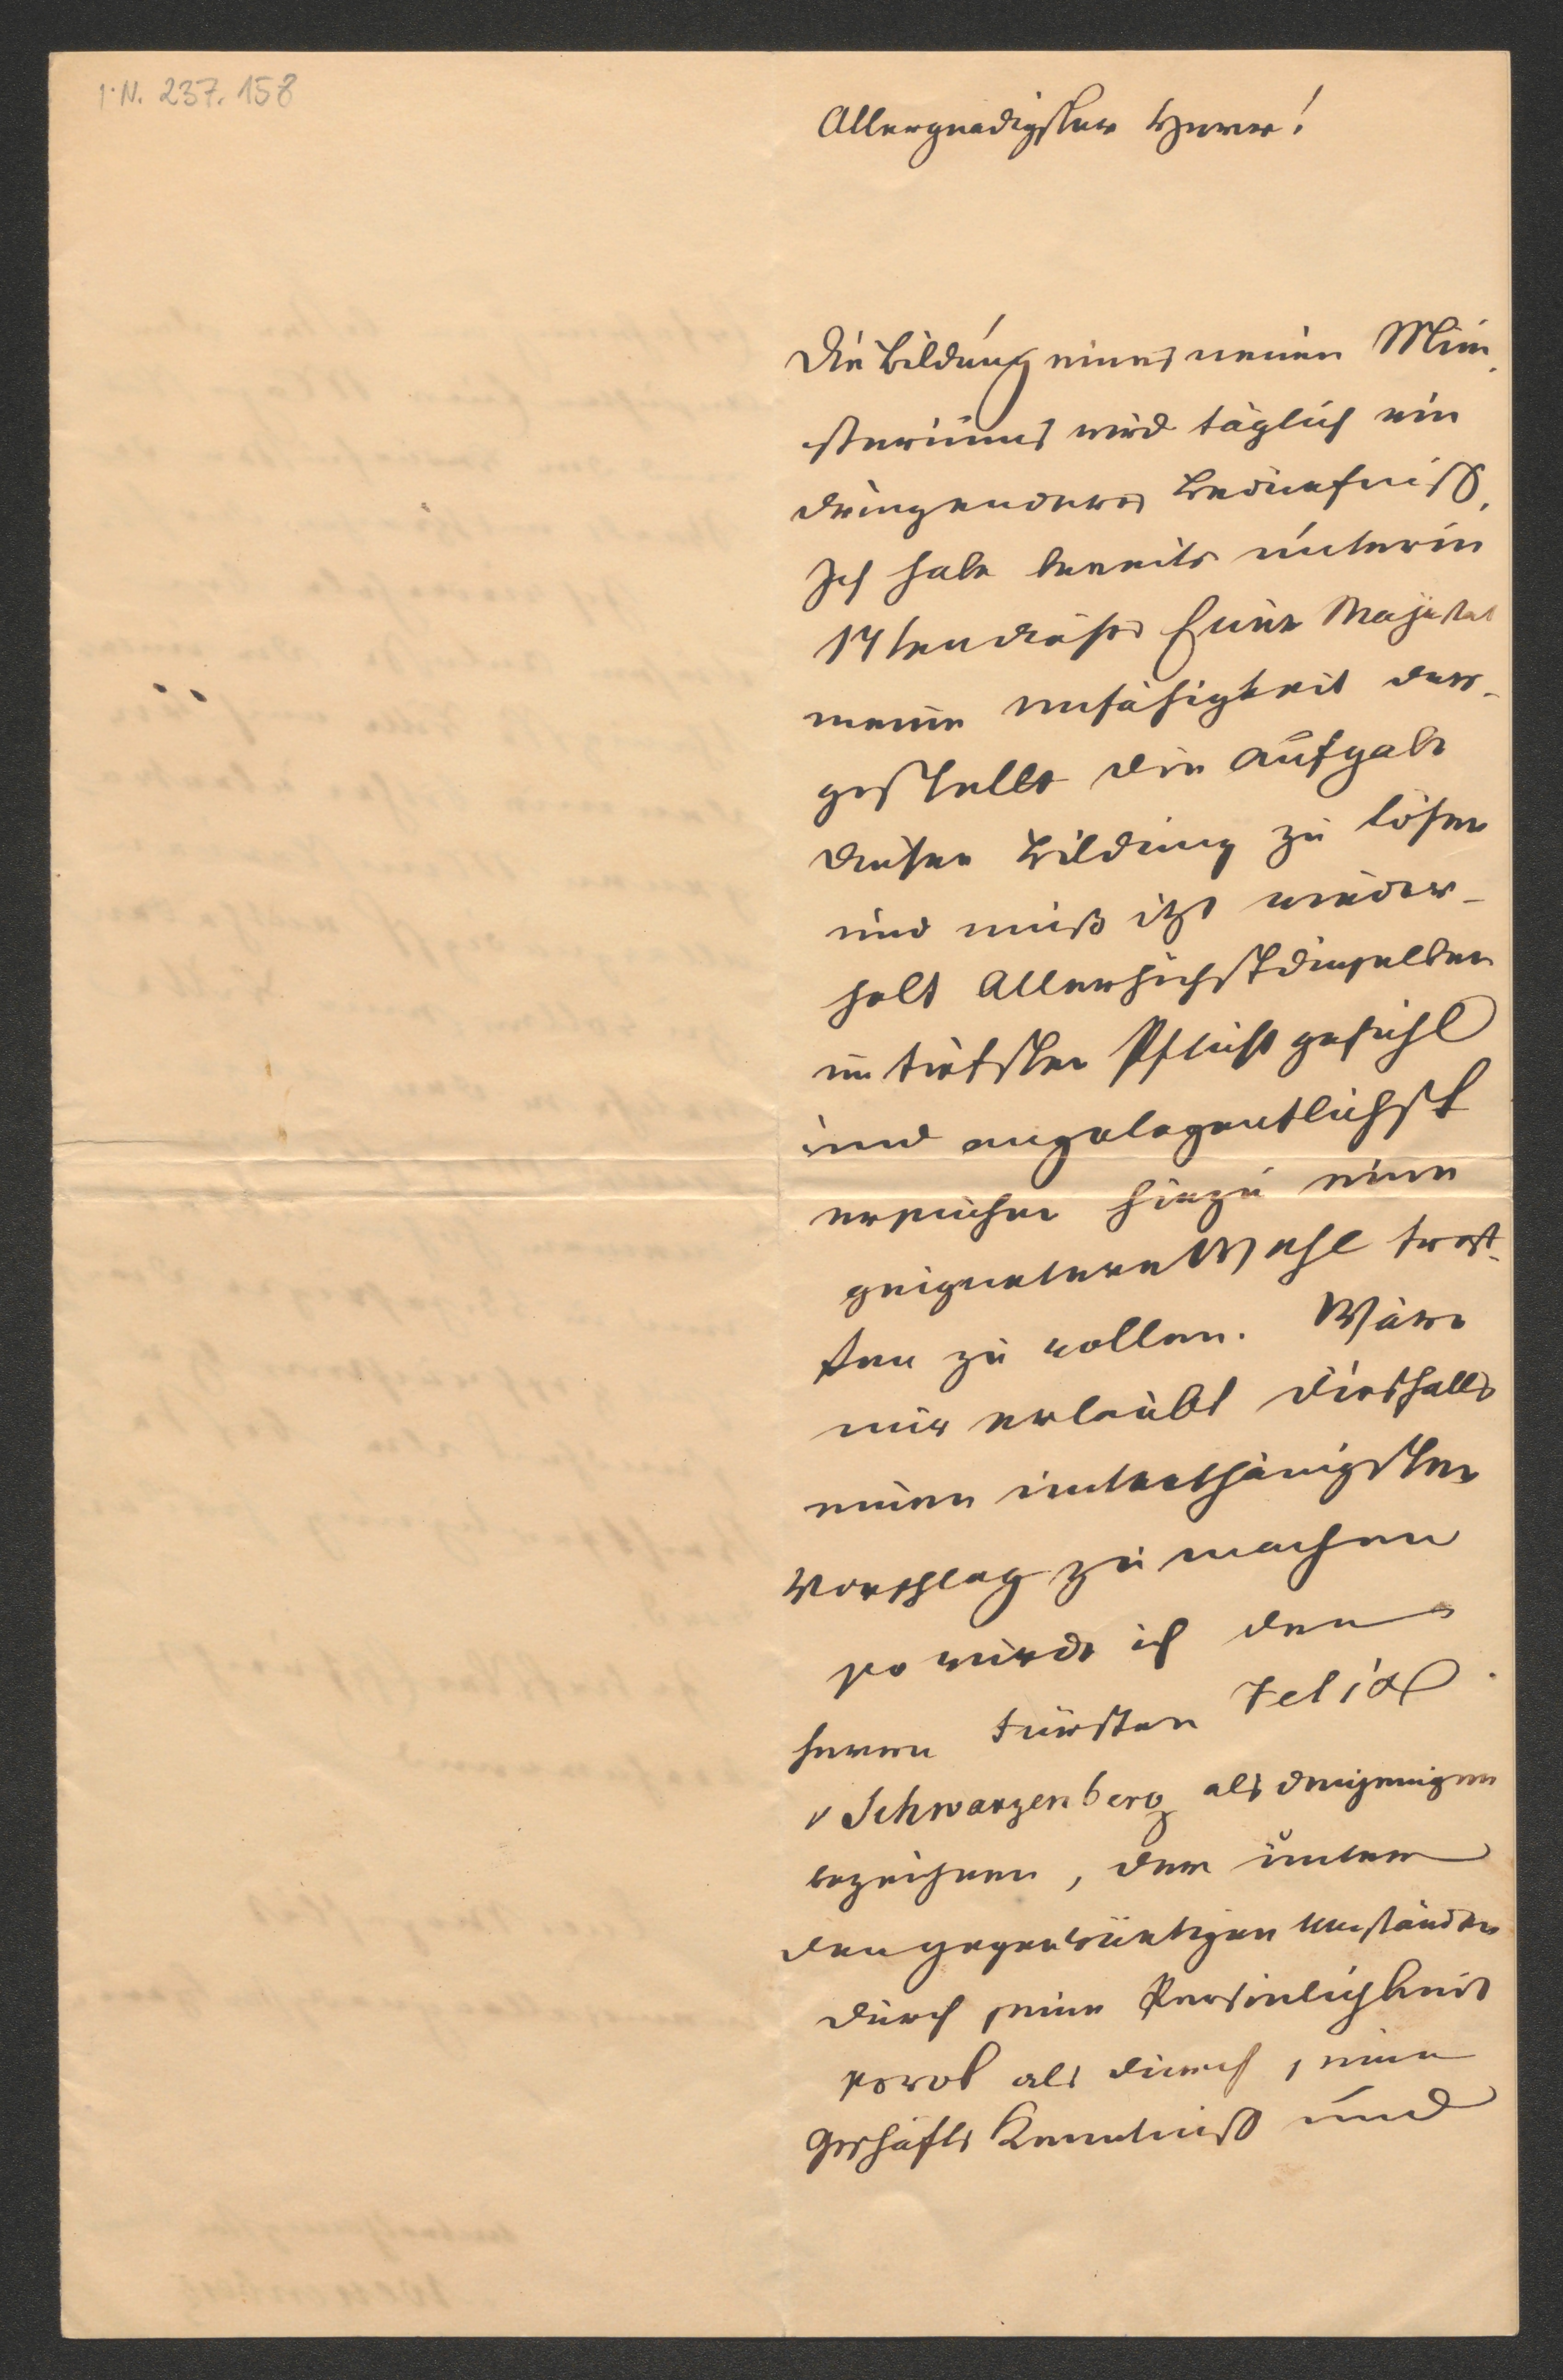 I.N. 237.158
Allergnädigster Herr!
Die Bildung eines neuen Mini
steriums wird täglich ein
dringenderes Bedürfniß.
Ich habe bereits unterm
14ten dieses Euer Majestät
meine Unfähigkeit dar-
gestellt die Aufgabe
dieser Bildung zu lösen
und muß itzt wieder-
holt Allerhöchstdieselben
im tiefsten Pflichtgefühl
und angelegentlichst
ersuchen hiezu eine
geignetere Wahl tref-
fen zu wollen. Wäre
mir erlaubt diesfalls
einen unterthänigsten
Vorschlag zu machen
so würde ich den
Herrn Fürsten Felix
v Schwarzenberg als denjenigen
bezeichnen, der unter
den gegenwärtigen Umständen
durch seine Persönlichkeit
sowol als durch seine
Geschäfts Kenntniß und